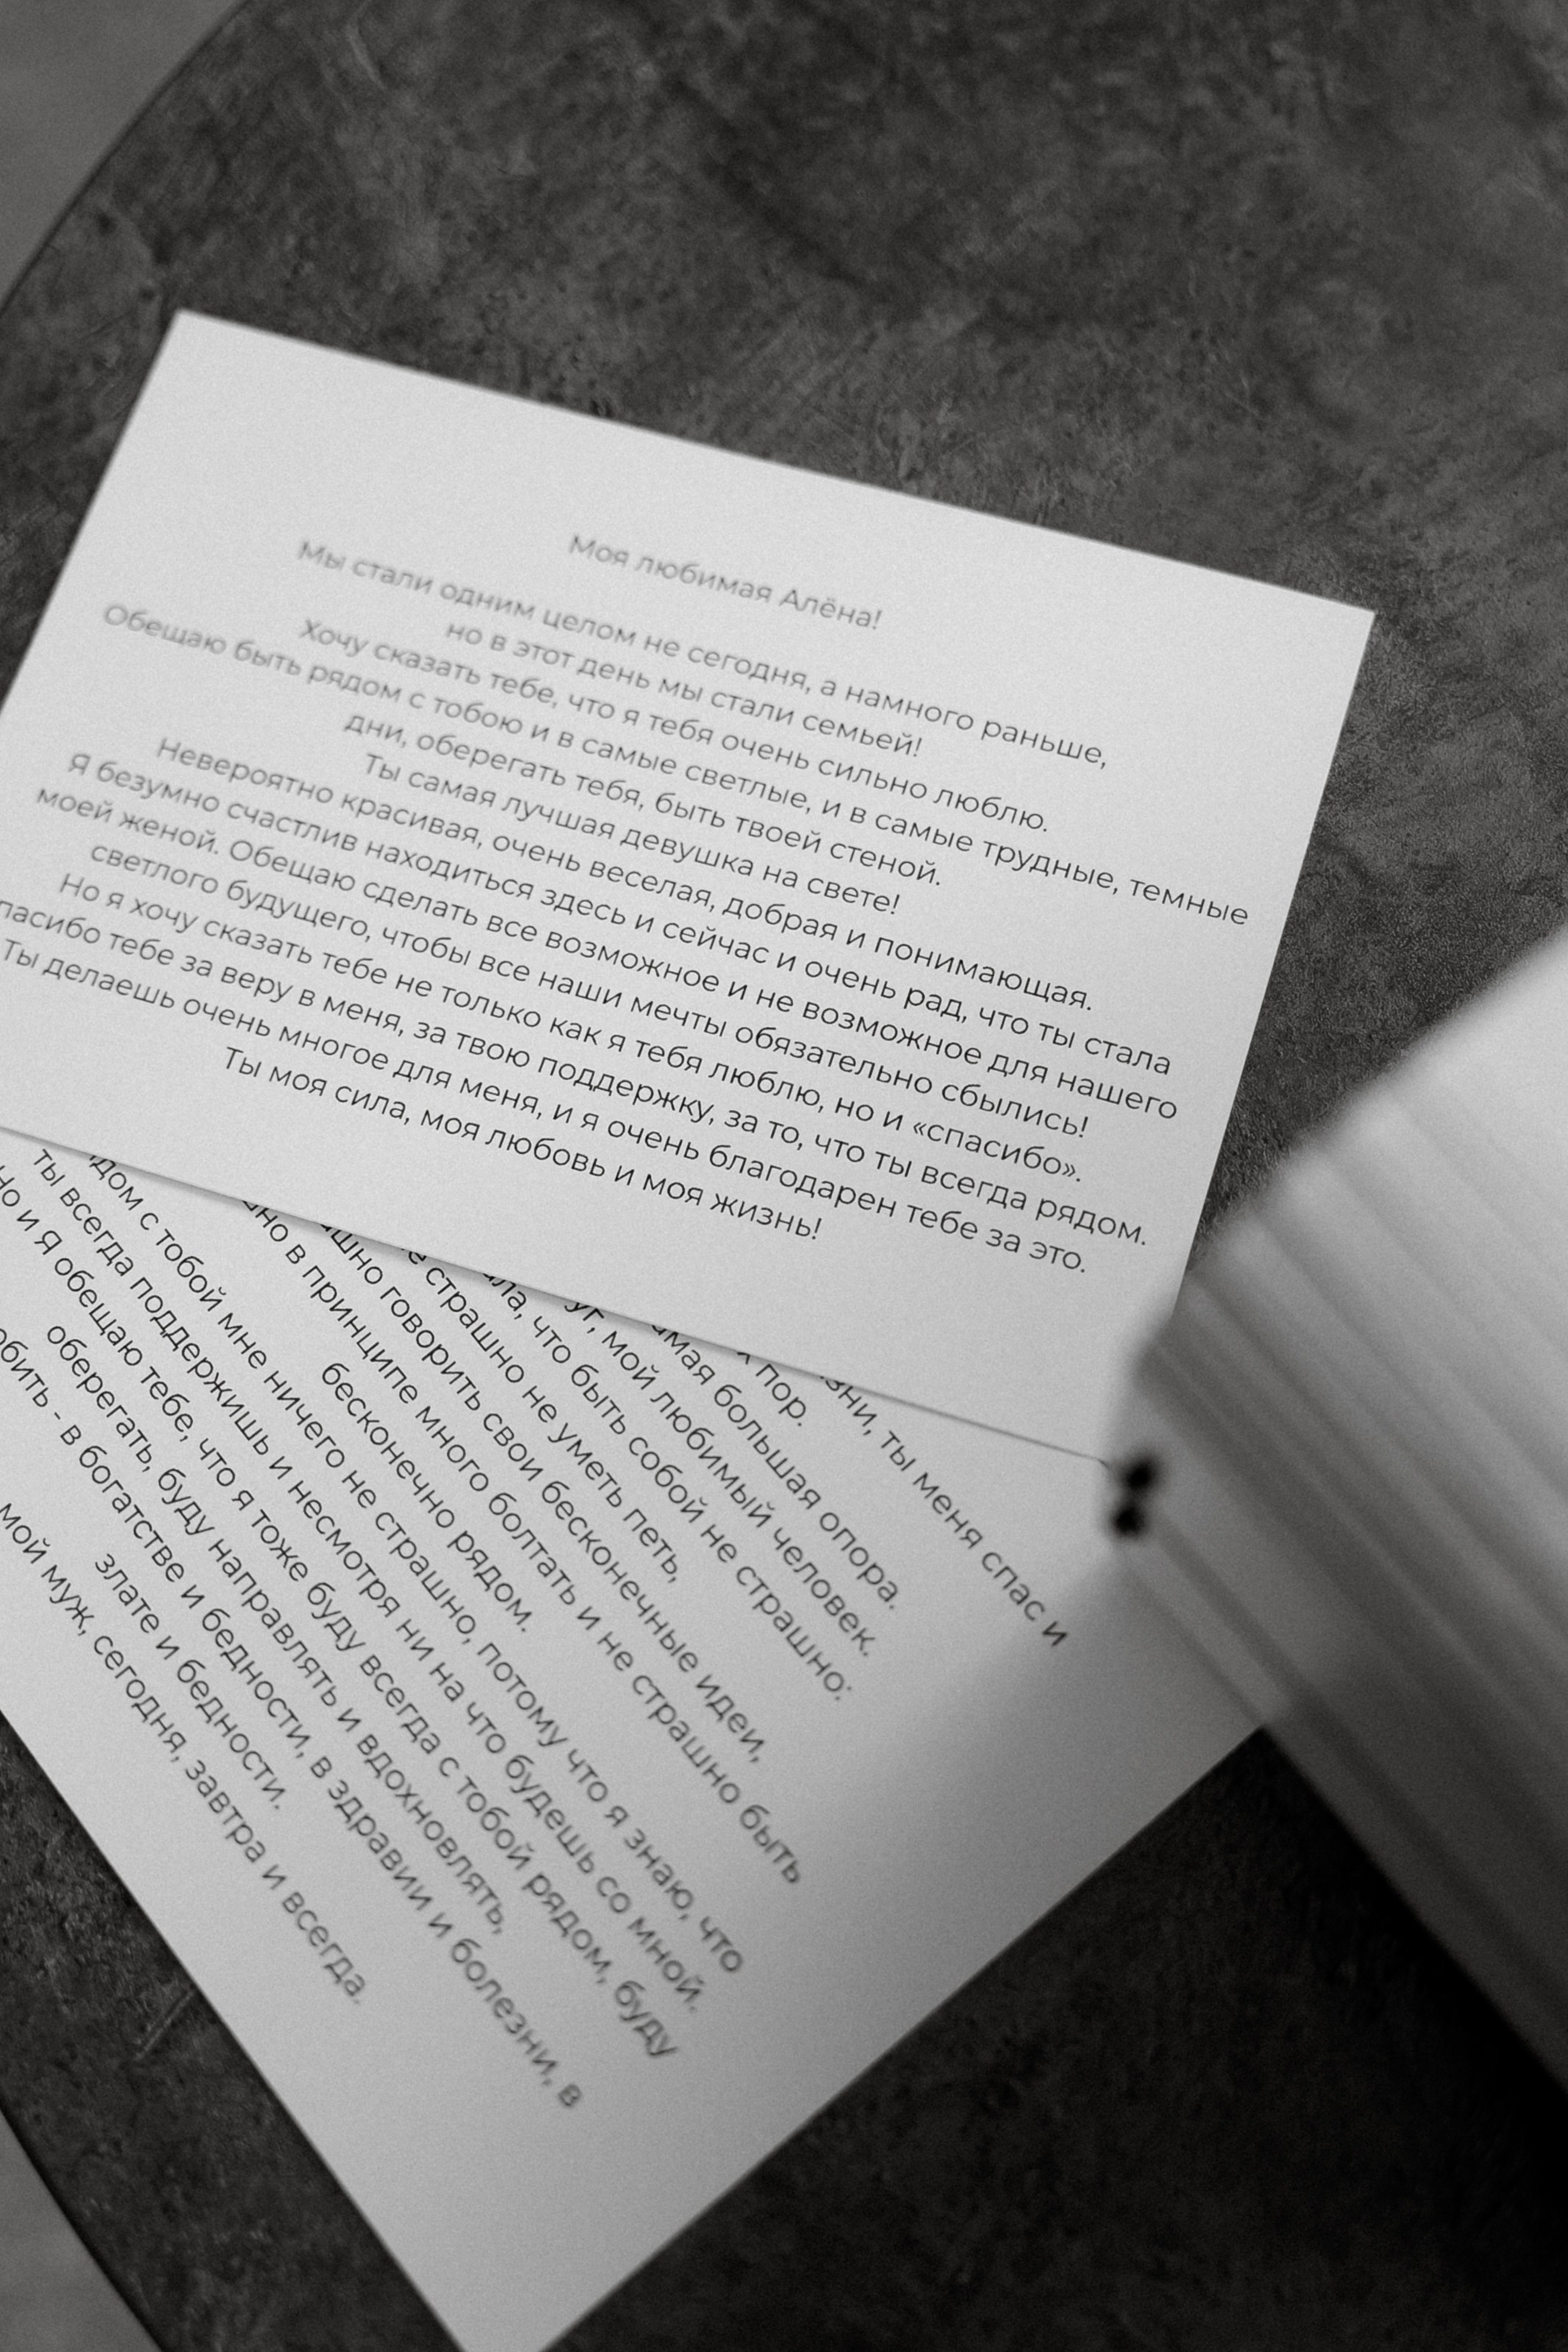 Моя любимая Алёна!
Мы стали одним целом не сегодня, а намного раньше,
но в этот день мы стали семьей!
Хочу сказать тебе, что я тебя очень сильно люблю.
Обещаю быть рядом с тобою и в самые светлые, и в самые трудные, темные
дни, оберегать тебя, быть твоей стеной.
Ты самая лучшая девушка на свете!
Невероятно красивая, очень веселая, добрая и понимающая.
Я безумно счастлив находиться здесь и сейчас и очень рад, что ты стала
моей женой. Обещаю сделать все возможное и не возможное для нашего
светлого будущего, чтобы все наши мечты обязательно сбылись!
Но я хочу сказать тебе не только как я тебя люблю, но и «спасибо».
пасибо тебе за веру в меня, за твою поддержку, за то, что ты всегда рядом.
Ты делаешь очень многое для меня, и я очень благодарен тебе за это.
Ты моя сила, моя любовь и моя жизнь!
зни, ты меня спас и
пор.
мая большая опора.
уг, мой любимый человек.
ла, что быть собой не страшно:
е страшно не уметь петь,
шно говорить свои бесконечные идеи,
но в принципе много болтать и не страшно быть
бесконечно рядом.
дом с тобой мне ничего не страшно, потому что я знаю, что
ты всегда поддержишь и несмотря ни на что будешь со мной.
но и Я обещаю тебе, что я тоже буду всегда с тобой рядом, буду
оберегать, буду направлять и вдохновлять,
бить - в богатстве и бедности, в здравии и болезни, в
злате и бедности.
мой муж, сегодня, завтра и всегда.